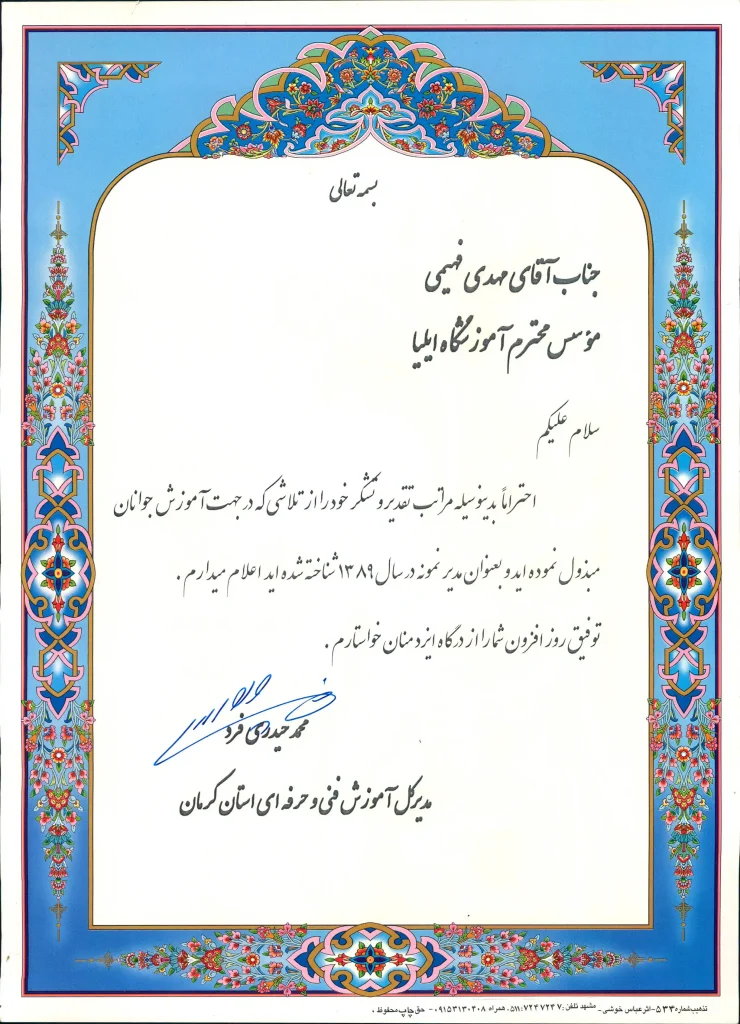 بسمه تعالی
جناب آقای مهدی فهیمی
مؤسس محترم آموزشگاه ایلیا
سلام علیکم
احتراماً بدینوسیله مراتب تقدیر و تشکر خود را از تلاشی که در جهت آموزش جوانان
مبذول نموده اید و بعنوان مدیر نمونه در سال ۱۳۸۹ شناخته شده اید اعلام میدارم .
توفیق روز افزون شما را از درگاه ایزد منان خواستارم .
محمد حیدری فرد
مدیرکل آموزش فنی و حرفه ای استان کرمان
تذهیب شماره ۵۳۳ - اثر عباس خوشی - مشهد تلفن : ۷۲۴۷۲۴۷-۰۵۱۱ همراه ۰۹۱۵۳۱۳۰۳۰۸ - حق چاپ محفوظ .